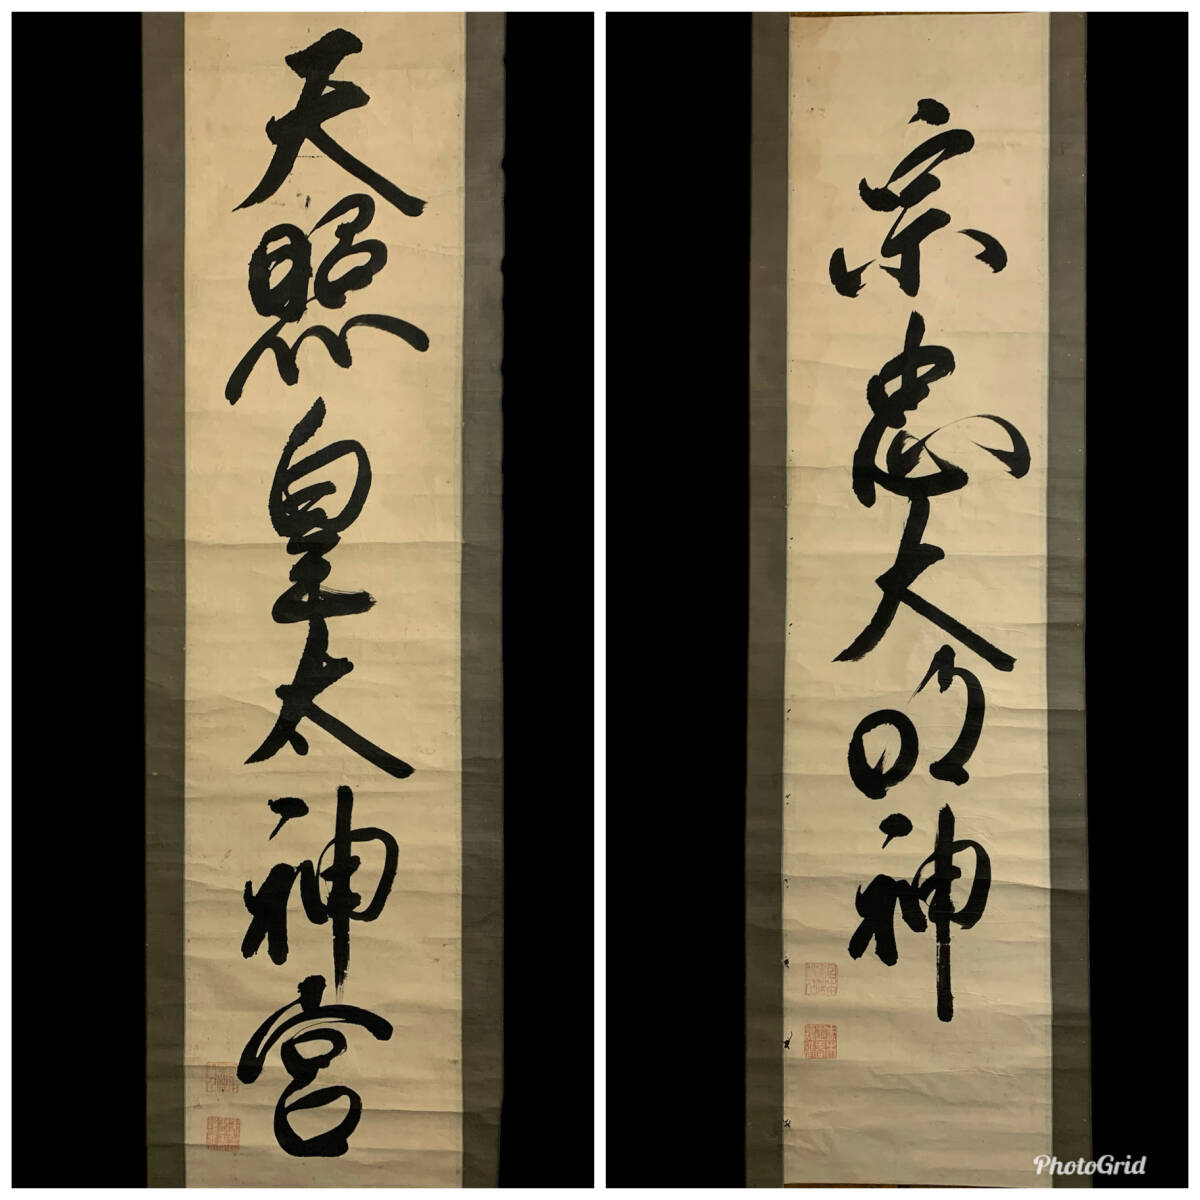 天照皇太神宮
宗忠大明神
PhotoGrid